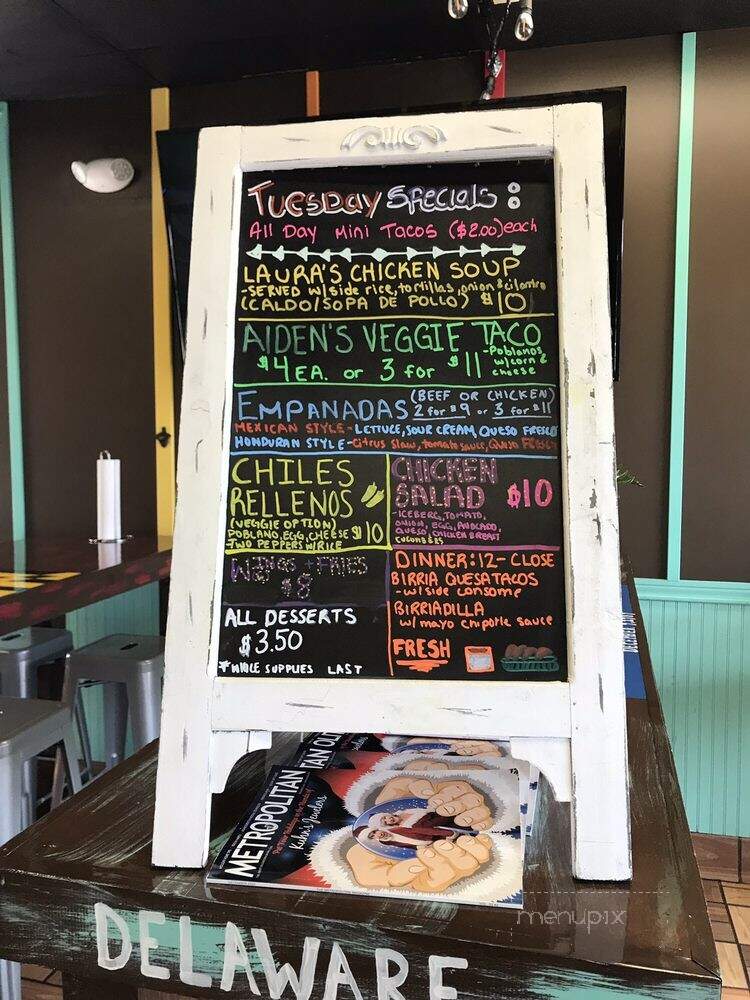 Tuesday Specials:
All Day Mini Tacos ($2.00) each
LAURA'S CHICKEN SOUP
-SERVED w/side rice, tortillas, onion & cilantro
(CALDO/SOPA DE POLLO) $10
AIDEN'S VEGGIE TACO
$4 EA. or 3 for $11
-Poblanos
w/corn &
cheese
EMPANADAS (BEEF OR CHICKEN)
2 for $9 or 3 for $11
MEXICAN STYLE- LETTUCE, SOUR CREAM, QUESO FRESCO
HONDURAN STYLE-Citrus Slaw, tomato sauce, Queso FRESCO
CHILES
RELLENOS
(VEGGIE OPTION)
POBLANO, EGG, CHEESE $10
-TWO PEPPERS W/RICE
CHICKEN
SALAD $10
-ICEBERG, TOMATO,
ONION, EGG, AVOCADO,
QUESO, CHICKEN BREAST
CUCUMBERS
WINGS + FRIES
$8
ALL DESSERTS
$3.50
*WHILE SUPPLIES LAST
DINNER: 12-CLOSE
BIRRIA QUESATACOS
-w/side consome
BIRRIADILLA
w/mayo chipotle sauce
FRESH
METROPOLITAN
Kuhn's Jewelers
menupix
DELAWARE